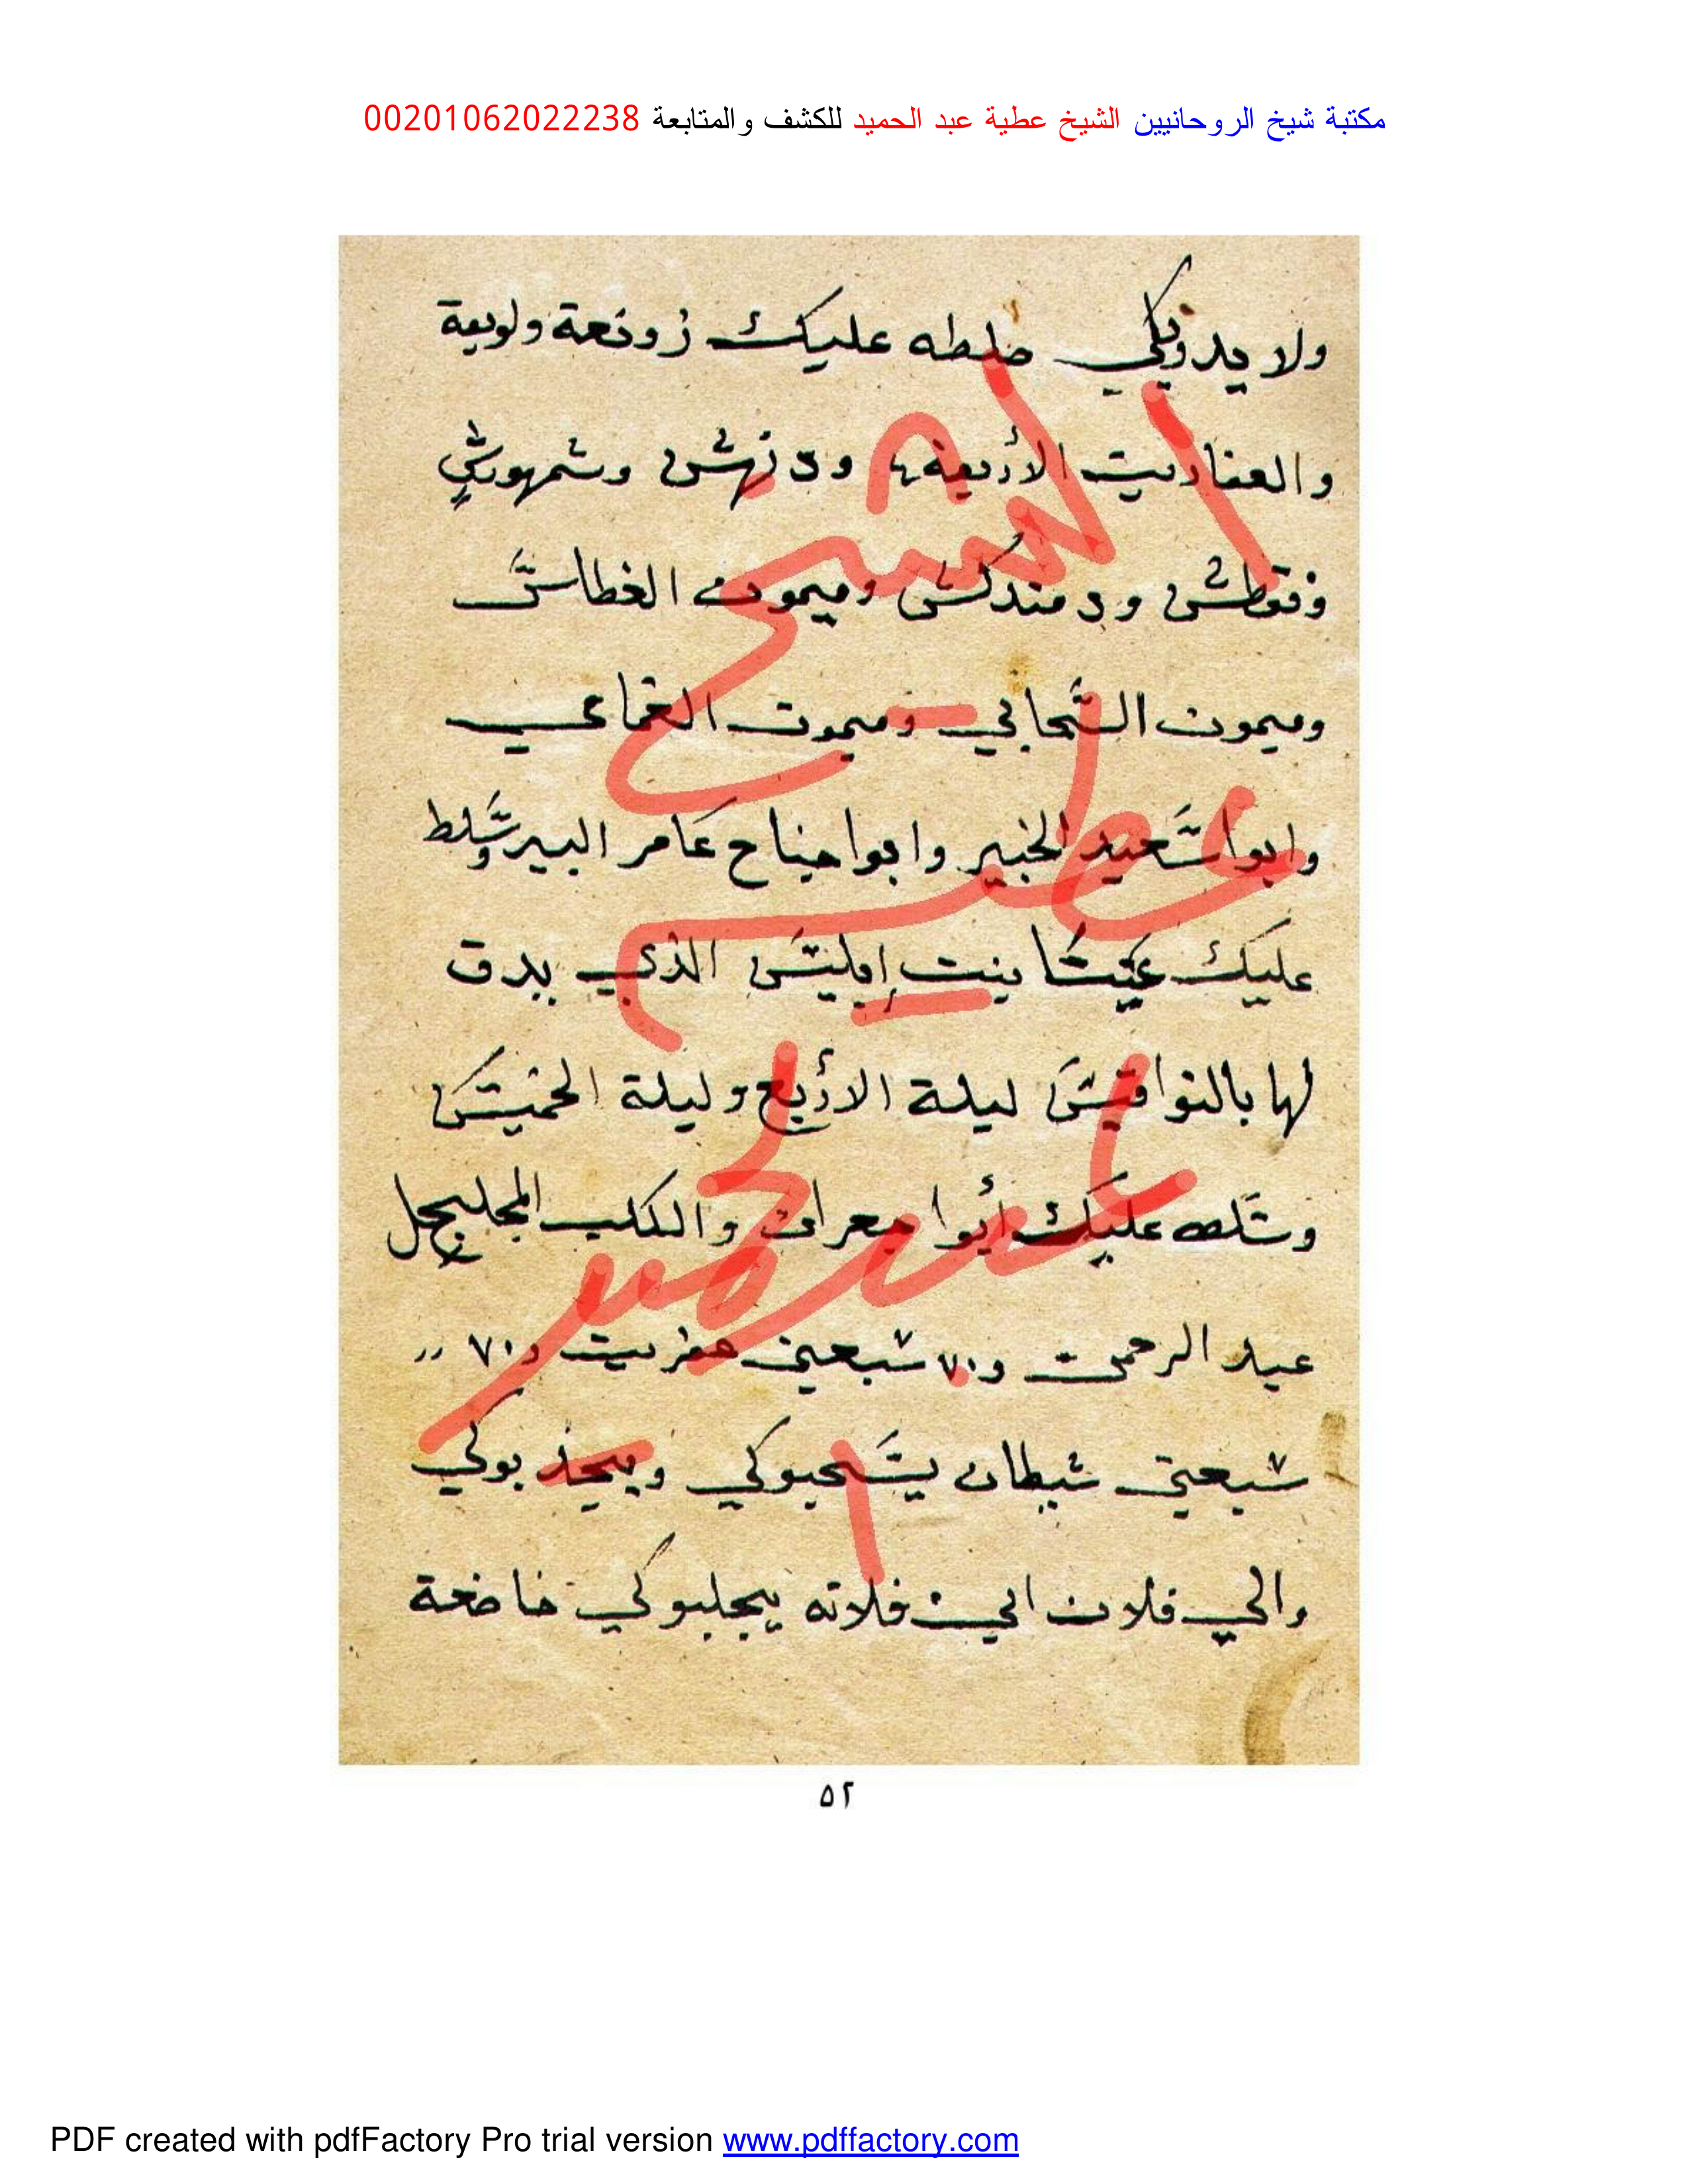 مكتبة شيخ الروحانيين الشيخ عطية عبد الحميد للكشف والمتابعة 00201062022238
ولا عليك زوبعة ولويعة
والعفاريت الأربعة ودنهش وشمهورش
وفقطش ودمندكش وميمون الغطاس
وميمون السحابي وميمون الغماعي
وابوا سعيد الخبير وابوا جناح عامر البير وسلط
عليك عيشا بنت إبليس الذي يدق
لها بالنواقيس ليلة الأربع وليلة الخميس
عليك أبوا معران والكلب المجليجل
عبد الرحمن و٧٠ سبعين عفريت و٧٠ ،،
سبعين شيطان يسحبوكي ويجذبوكي
والي فلان الي فلانه يجلبوكي خاضعة
٥٢
PDF created with pdfFactory Pro trial version www.pdffactory.com
الشيخ
عطية
عبد الحميد